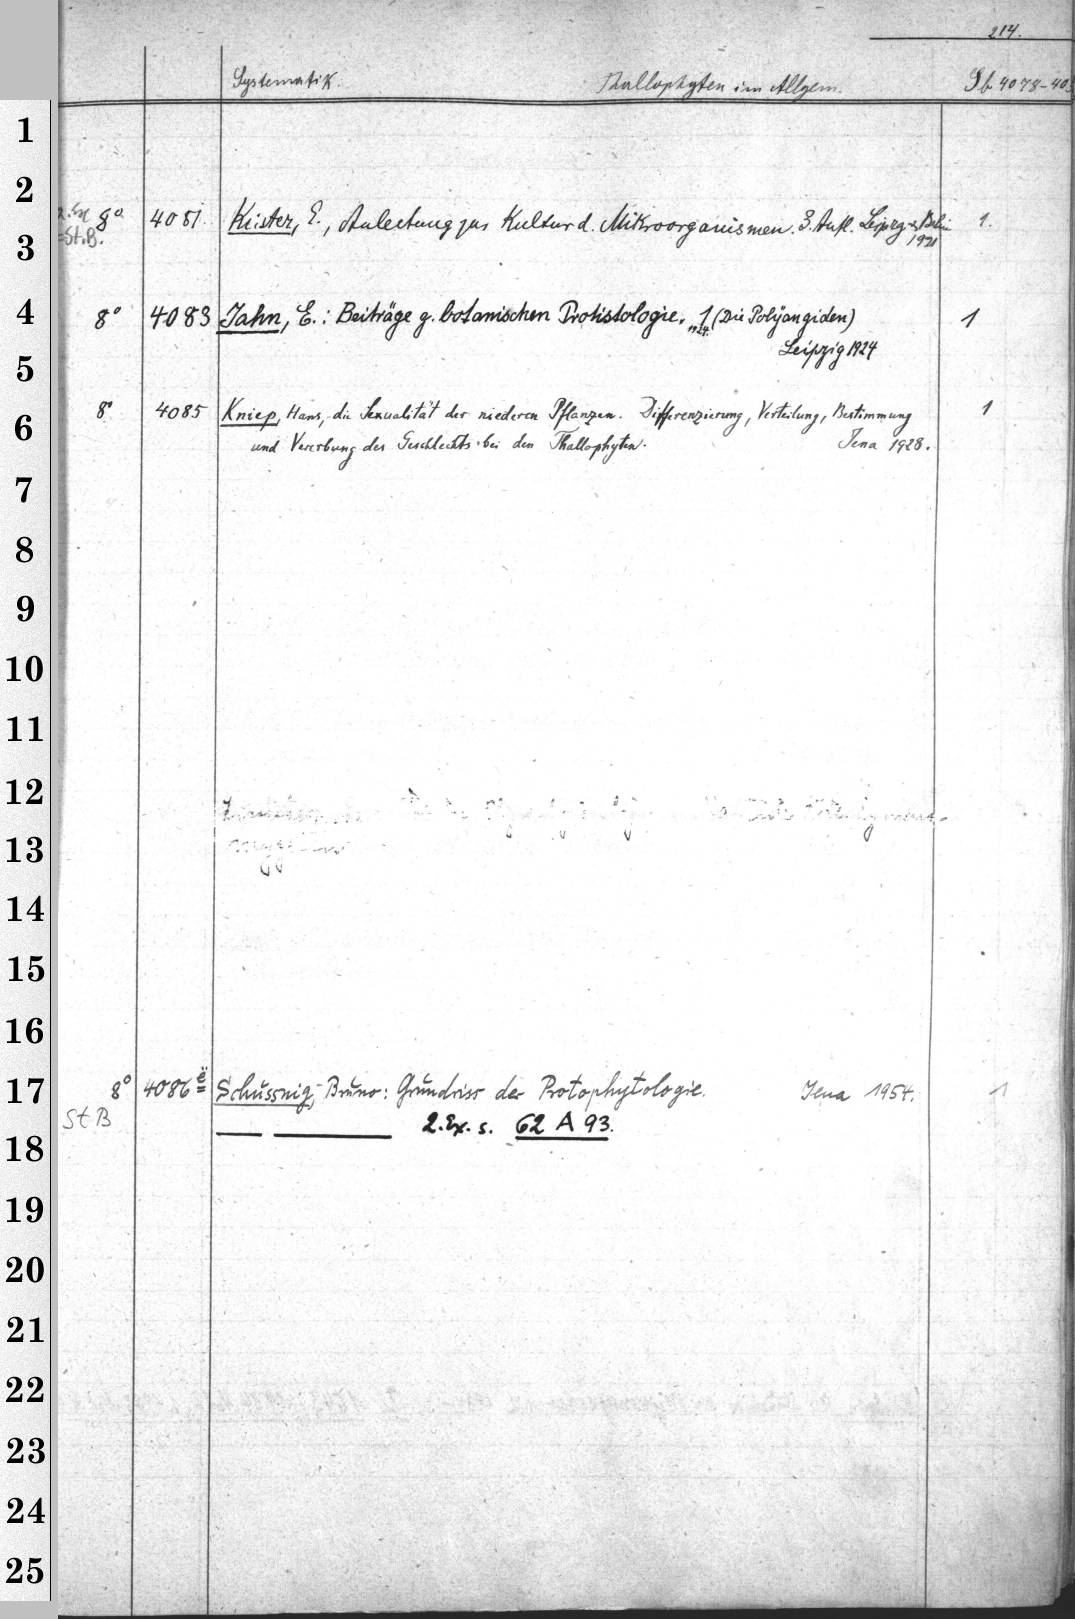 214.
Systematik. Thallophyten im Allgem. Sb 4078-40
1
2
2. Ex 8° 4081. Küster, E., Anleitung zur Kultur d. Mikroorganismen. 3. Aufl. Leipzig u. Berlin 1.
=St.B. 1921
3
4 8° 4083 Jahn, E.: Beiträge z. botanischen Protistologie. 1 (Die Polyangiden) 1
Leipzig 1924
5
8° 4085 Kniep, Hans, die Sexualität der niederen Pflanzen. Differenzierung, Verteilung, Bestimmung 1
6
und Vererbung des Geschlechts bei den Thallophyten. Jena 1928.
7
8
9
10
11
12
13
14
15
16
17 8° 4086 e Schussnig, Bruno: Grundriss der Protophytologie. Jena 1954. 1
St B
2. Ex. s. 62 A 93.
18
19
20
21
22
23
24
25